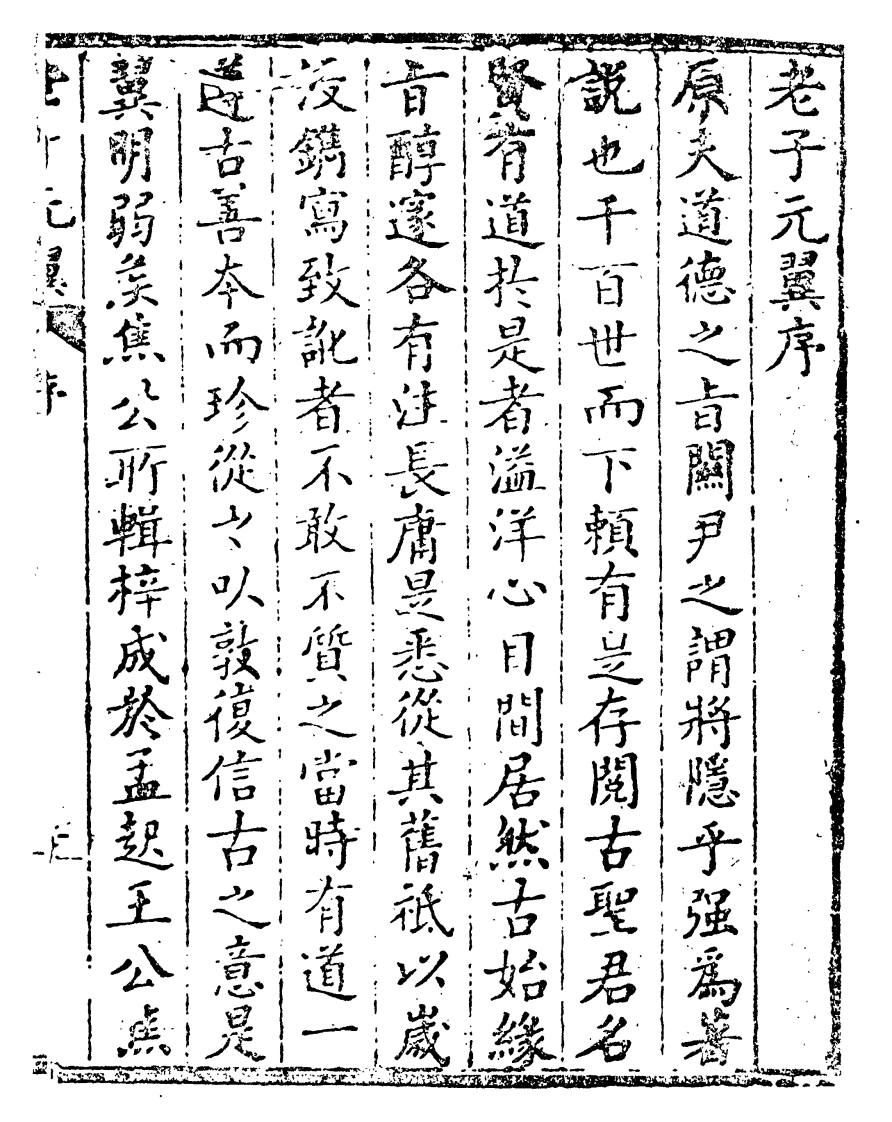 老子元翼序
原夫道德之旨關尹之謂將隱乎强爲著
説也千百世而下頼有是存閱古聖君名
賢有道於是者溢洋心目間居然古始緣
旨醇邃各有注長庸是悉從其舊祗以歲
没鐫寫致訛者不敢不質之當時有道一
遵古善本而珍從之以敦復信古之意是
翼明弱矣焦公所輯梓成於孟起王公焦
元翼 序